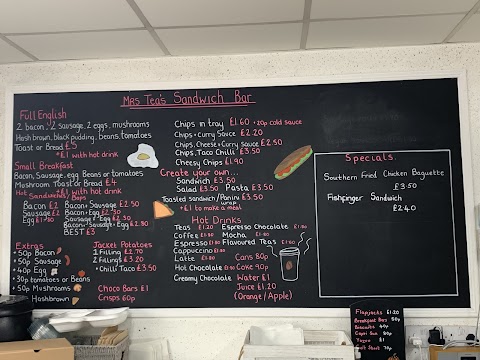 Mrs Tea's Sandwich Bar
Full English
2 bacon, 2 sausage, 2 eggs, mushrooms
Hash brown, black pudding, beans, tomatoes
Toast or Bread £5
+£1 with hot drink
Small Breakfast
Bacon, Sausage, egg Beans or tomatoes
Mushroom. Toast or Bread £4
+£1 with hot drink
Hot Sandwiches/Baps
Bacon £2 Bacon + Sausage £2.50
Sausage £2 Bacon + Egg £2.30
Egg £1 Sausage + Egg £2.30
Bacon + Sausage + Egg £2.80
BEST £3
Extras
+50p Bacon
+50p Sausage
+40p Egg
+30p tomatoes or Beans
+50p Mushrooms
Hashbrown
Jacket Potatoes
1 Filling £2.70
2 Fillings £3.20
+Chilli Taco £3.50
Choco Bars £1
Crisps 60p
Chips in tray £1.60 +20p cold sauce
Chips + Curry Sauce £2.20
Chips, Cheese + Curry Sauce £2.50
Chips, Taco Chilli £3.50
Cheesy Chips £1.90
Create your own...
Sandwich £3.50
Salad £3.50 Pasta £3.50
Toasted sandwich/Panini £3.50
wrap
+£1 to make a meal
Hot Drinks
Teas £1.20 Espresso Chocolate £1.80
Coffee Mocha
Espresso Flavoured Teas
Cappuccino
Latte Cans 80p
Hot Chocolate Coke 90p
Creamy Chocolate Water £1
Juice £1.20
(Orange/Apple)
Specials.
Southern Fried Chicken Baguette
£3.50
Fishfinger Sandwich
£2.40
Flapjacks £1.20
Breakfast Bar 50p
Biscuits 40p
Capri Sun 50p